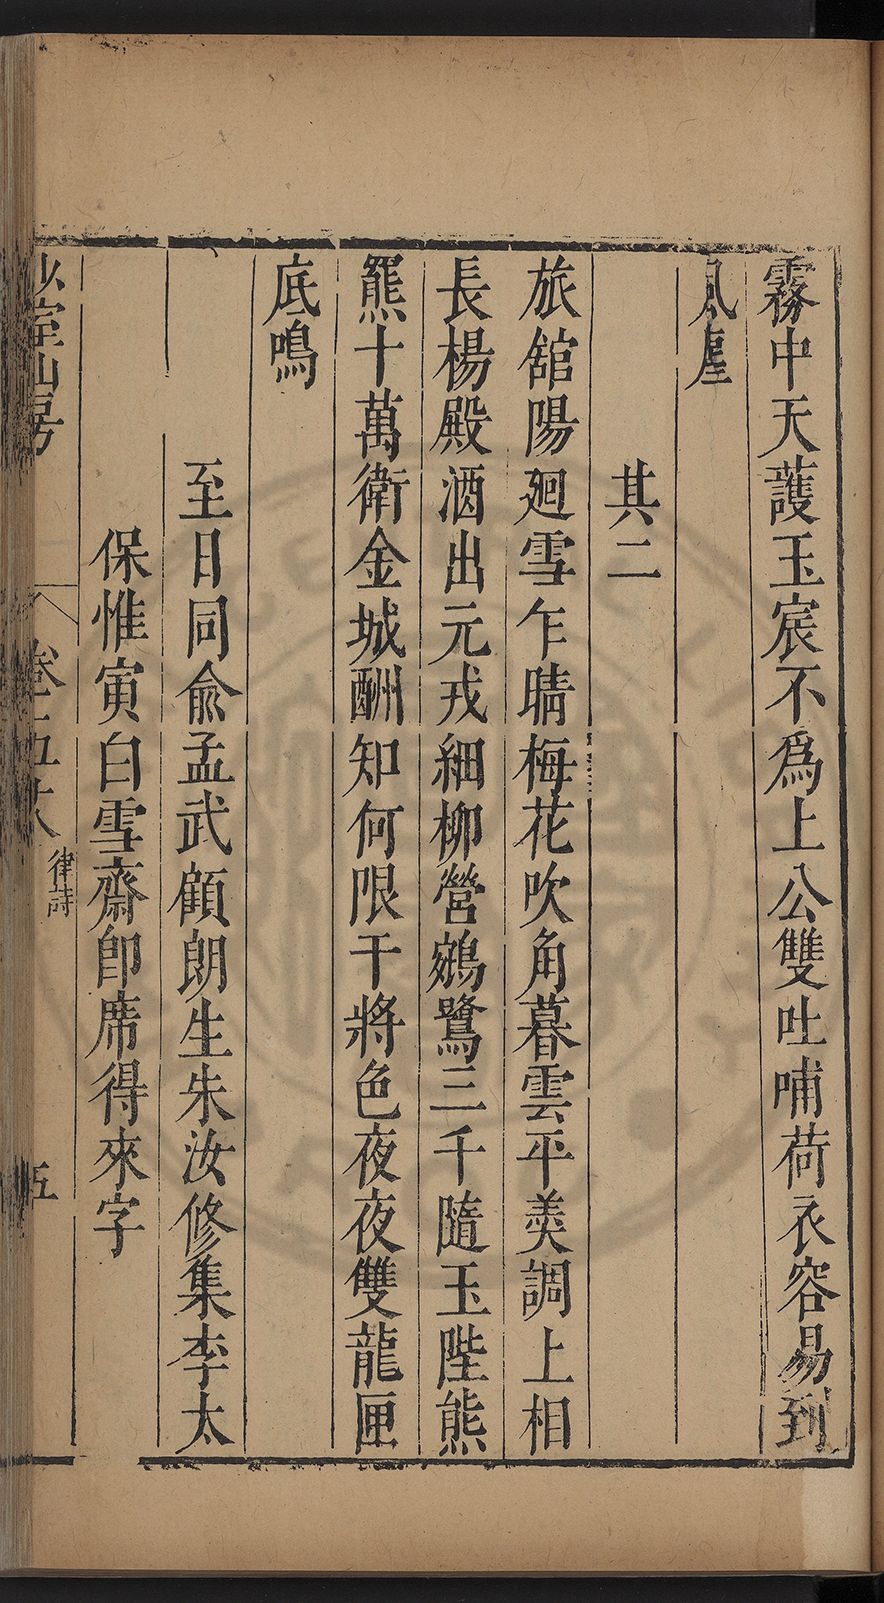 霧中天護玉宸不爲上公雙吐哺荷衣容易到
風塵
其二
旅舘陽廻雪乍晴梅花吹角暮雲平羮調上相
長楊殿酒出元戎細柳營鵷鷺三千隨玉陛熊
羆十萬衛金城酬知何限干將色夜夜雙龍匣
底鳴
至日同俞孟武顧朗生朱汝修集李太
保惟寅白雪齋卽席得來字
少室山房
卷五十八
律詩
五